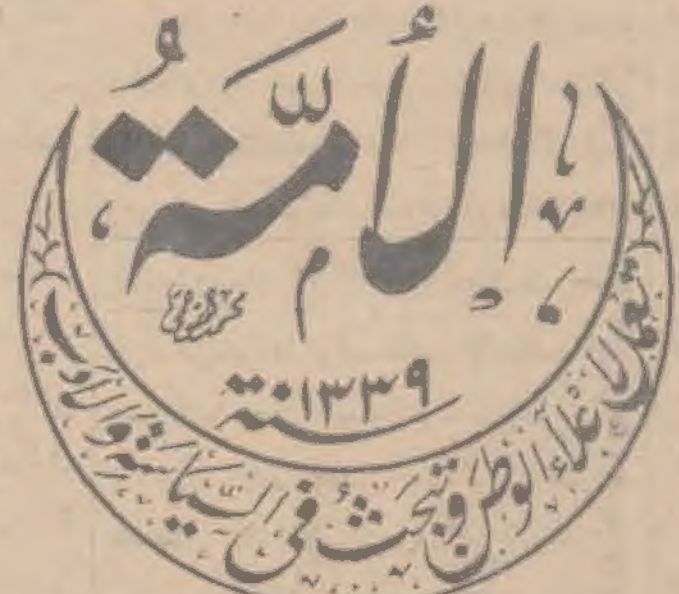 الأُمّةُ
سنة ١٣٣٩
تعمل لإعلاء الوطن وتبحث في السياسة والأدب